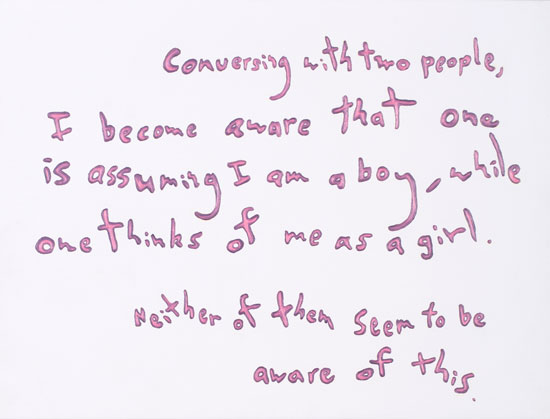 Conversing with two people,
I become aware that one
is assuming I am a boy, while
one thinks of me as a girl.
Neither of them seem to be
aware of this.